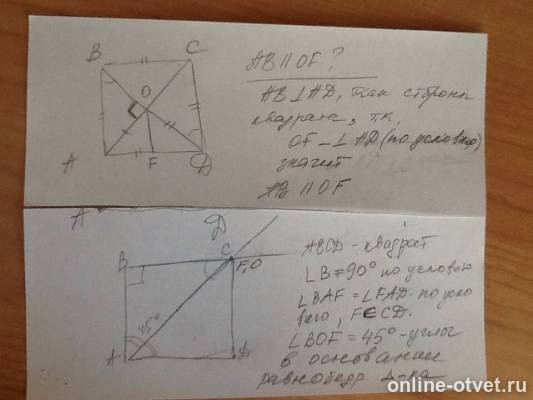 B C
AB || OF ?
O
AB ⊥ AD, так стороны
квадрата, т.к.
OF ⊥ AD (по условию)
значит
A F D
AB || OF
A D
B C
F, O
ABCD - квадрат
∠B = 90° по условию
∠BAF = ∠FAD по усло
вию, F∈CD.
45°
∠BOF = 45° - углы
в основании
A
равнобедр. Δ-ка
online-otvet.ru